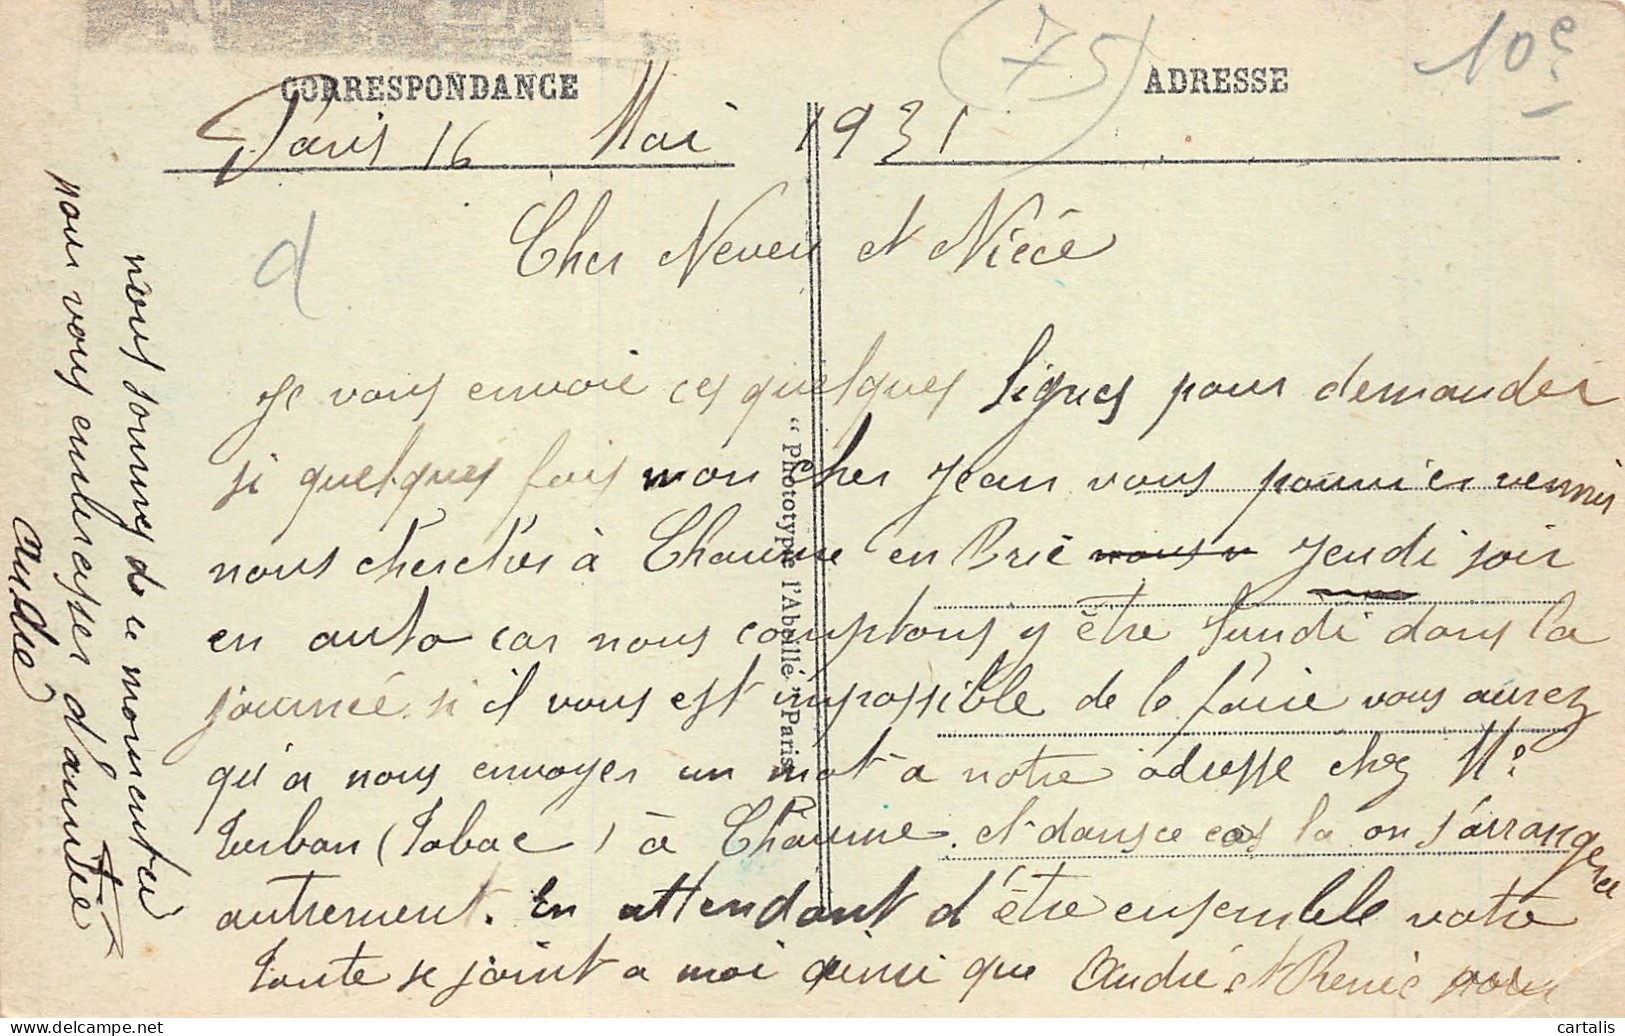 CORRESPONDANCE
ADRESSE
(75)
10e
Paris 16 Mai 1931
d
Cher Neveu et Niéce
Je vous envoie ces quelques lignes pour demander
si quelques fois mon cher Jean vous pourrier vennir
nous cherchér à Chaume en Brie vous v Jeudi soir
en auto car nous comptons y être lundi dans la
journée si il vous est impossible de le faire vous aurez
qu'a nous envoyer un mot a notre adresse chez Me
Turban (Tabac) à Chaume. et dans ce cas la on s'arrangera
autrement. En attendant d'être ensemble votre
tante se joint a moi ainsi que André et Renée pour
pour vous embrasser d'amitié
nous sommes de ce moment ici
André
"Phototypie l'Abeille" Paris
cartalis